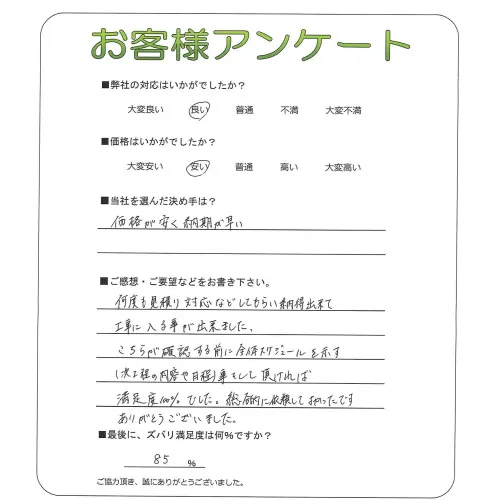 お客様アンケート
■弊社の対応はいかがでしたか？
大変良い 良い 普通 不満 大変不満
■価格はいかがでしたか？
大変安い 安い 普通 高い 大変高い
■当社を選んだ決め手は？
価格が安く納期が早い
■ご感想・ご要望などをお書き下さい。
何度も見積り対応などしてもらい納得出来て
工事に入る事が出来ました。
こちらが確認する前に全体スケジュールを示す
(次工程の内容や日程)事をして頂ければ
満足度100%でした。総合的に依頼して良かったです
ありがとうございました。
■最後に、ズバリ満足度は何%ですか？
85 %
ご協力頂き、誠にありがとうございました。